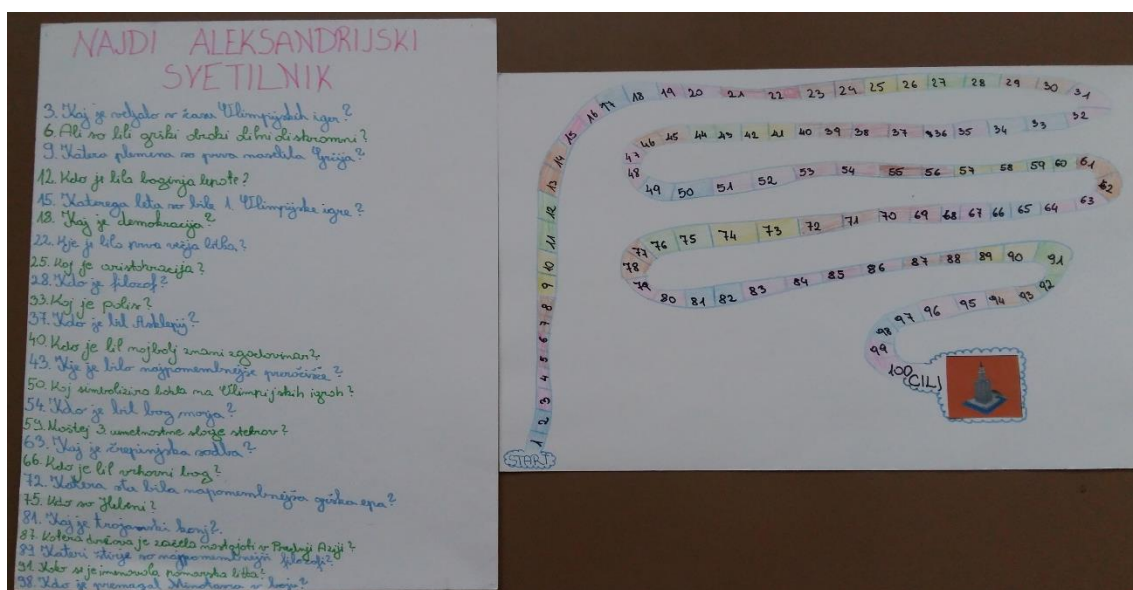 NAJDI ALEKSANDRIJSKI
SVETILNIK
3. Kaj je veljalo v času Olimpijskih iger?
6. Ali so bili grški otroki skromni?
9. Katera plemena so prva naselila Grčijo?
12. Kdo je bila boginja lepote?
15. Katerega leta so bile 1. Olimpijske igre?
18. Kaj je demokracija?
22. Kje je bila prva večja bitka?
25. Kaj je aristokracija?
28. Kdo je filozof?
33. Kaj je polis?
37. Kdo je bil Asklepij?
40. Kdo je bil najbolj znani zgodovinar?
43. Kje je bilo najpomembnejše preročišče?
50. Kaj simbolizira bakla na Olimpijskih igrah?
54. Kdo je bil bog morja?
59. Naštej 3 umetnostne sloge stebrov?
63. Kaj je črepinjska sodba?
66. Kdo je bil vrhovni bog?
72. Katera sta bila napomembnejša grška epa?
75. Kdo so Heleni?
81. Kaj je trojanski konj?
87. Katera država je začela nastajati v Prednji Aziji?
89. Kateri štirje so najpomembnejši filozofi?
91. Kako se je imenovala pomorska bitka?
98. Kdo je premagal Minotavra v boju?
START
1 2 3 4 5 6 7 8 9 10 11 12 13 14 15 16 17 18 19 20 21 22 23 24 25 26 27 28 29 30 31
32 33 34 35 36 37 38 39 40 41 42 43 44 45 46 47
48 49 50 51 52 53 54 55 56 57 58 59 60 61
62 63 64 65 66 67 68 69 70 71 72 73 74 75 76 77
78 79 80 81 82 83 84 85 86 87 88 89 90 91
92 93 94 95 96 97 98 99 100
CILJ